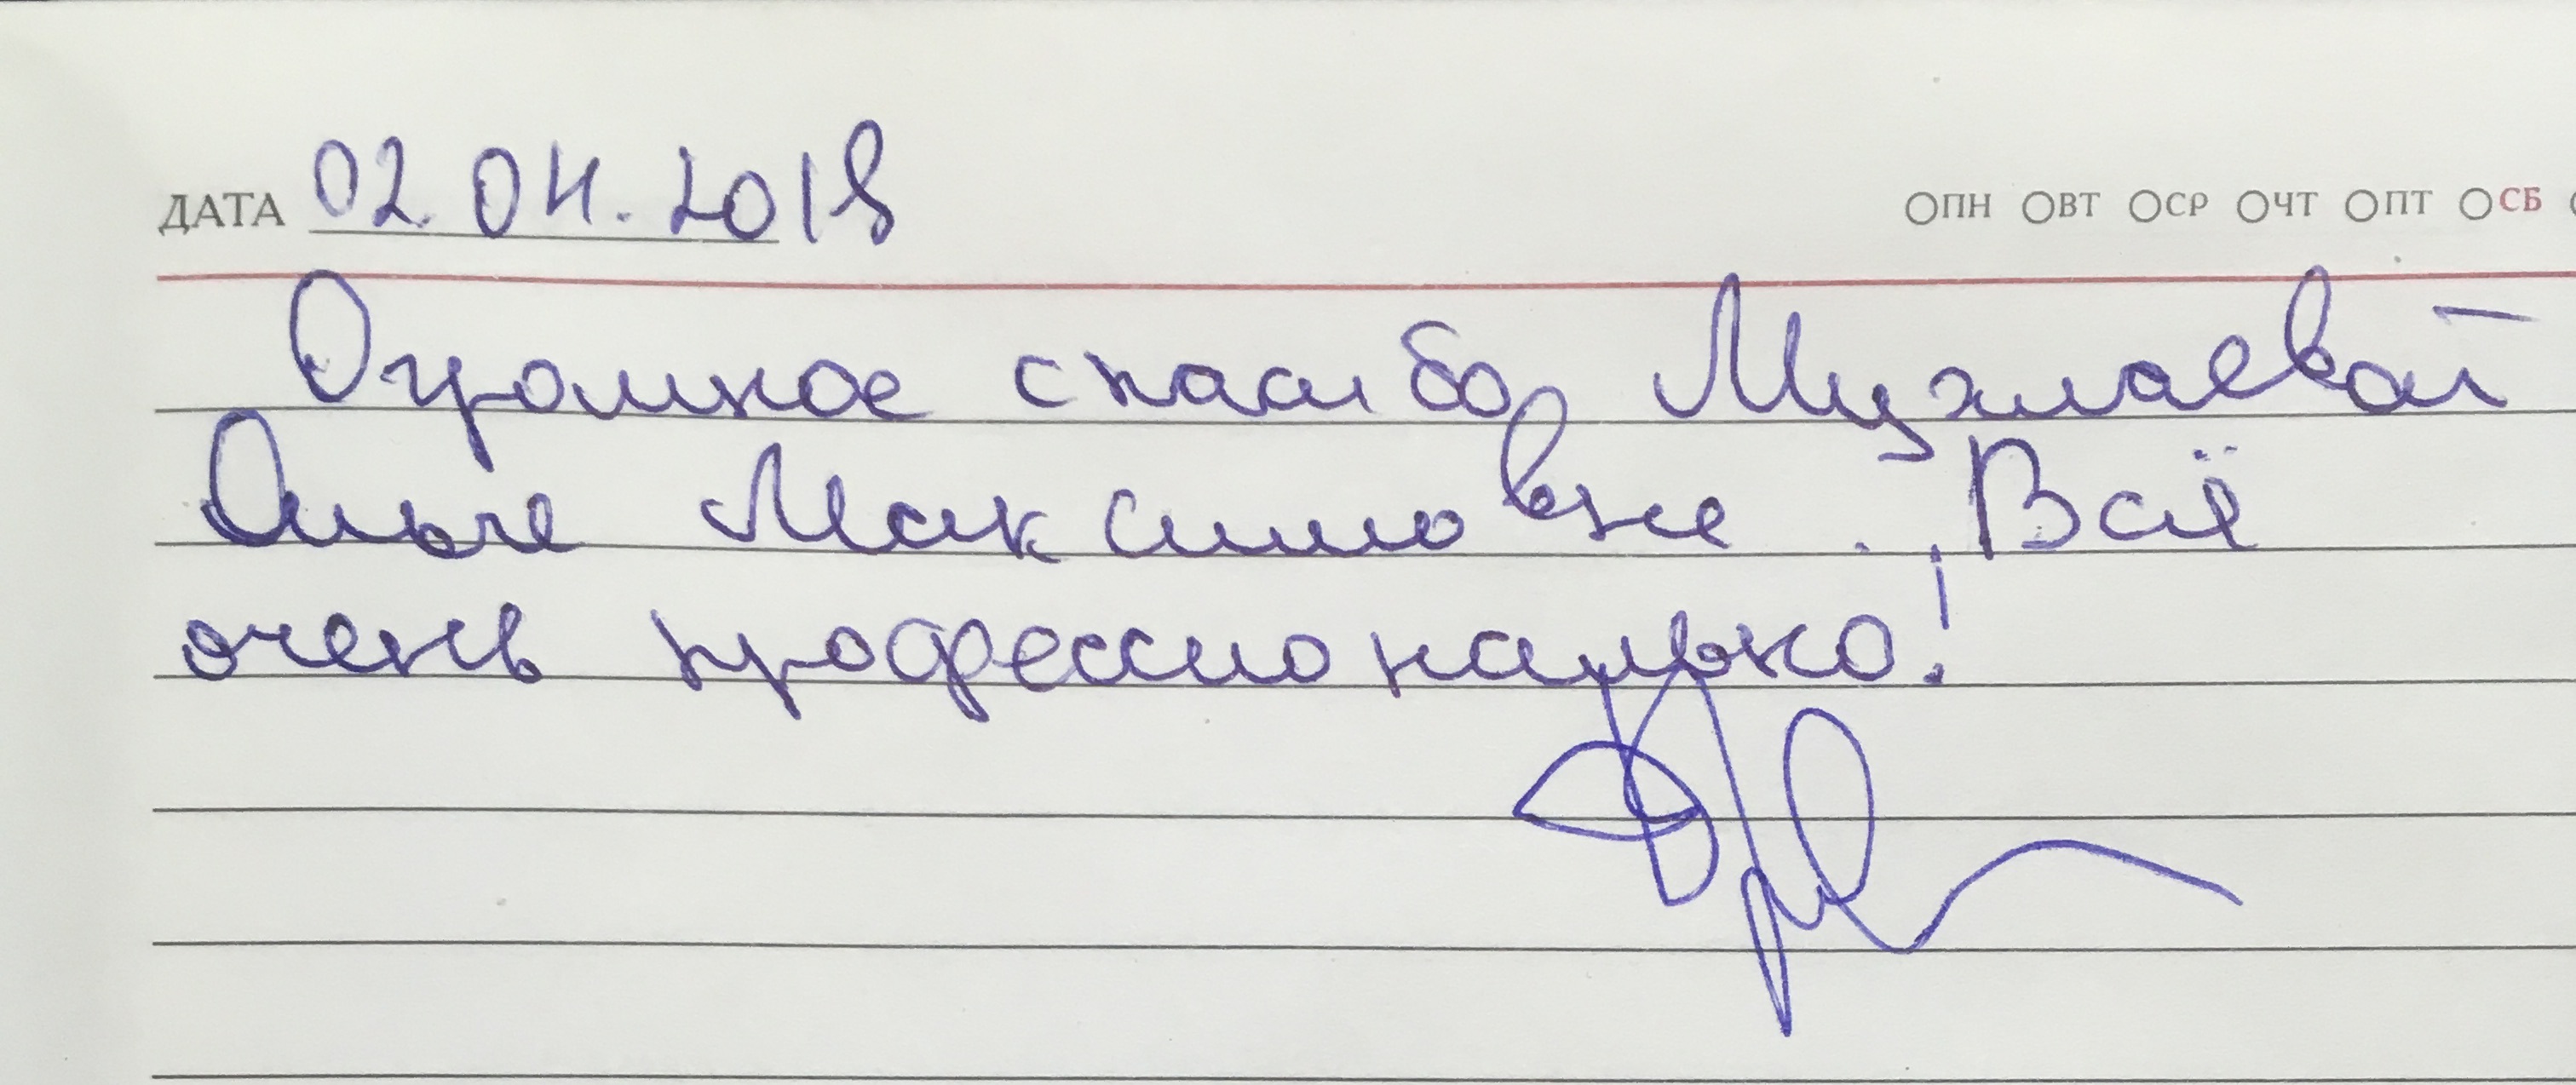 ДАТА 02.04.2018 ПН ВТ СР ЧТ ПТ СБ
Огромное спасибо Мужлаевой
Ольге Максимовне. Всё
очень профессионально!